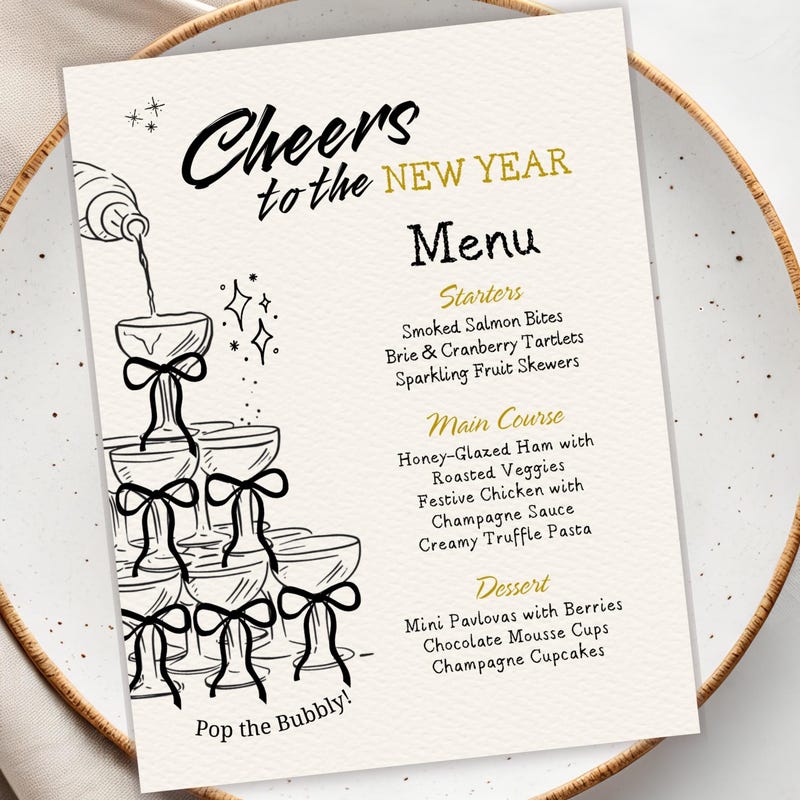 Cheers
to the NEW YEAR
Menu
Starters
Smoked Salmon Bites
Brie & Cranberry Tartlets
Sparkling Fruit Skewers
Main Course
Honey-Glazed Ham with
Roasted Veggies
Festive Chicken with
Champagne Sauce
Creamy Truffle Pasta
Dessert
Mini Pavlovas with Berries
Chocolate Mousse Cups
Champagne Cupcakes
Pop the Bubbly!